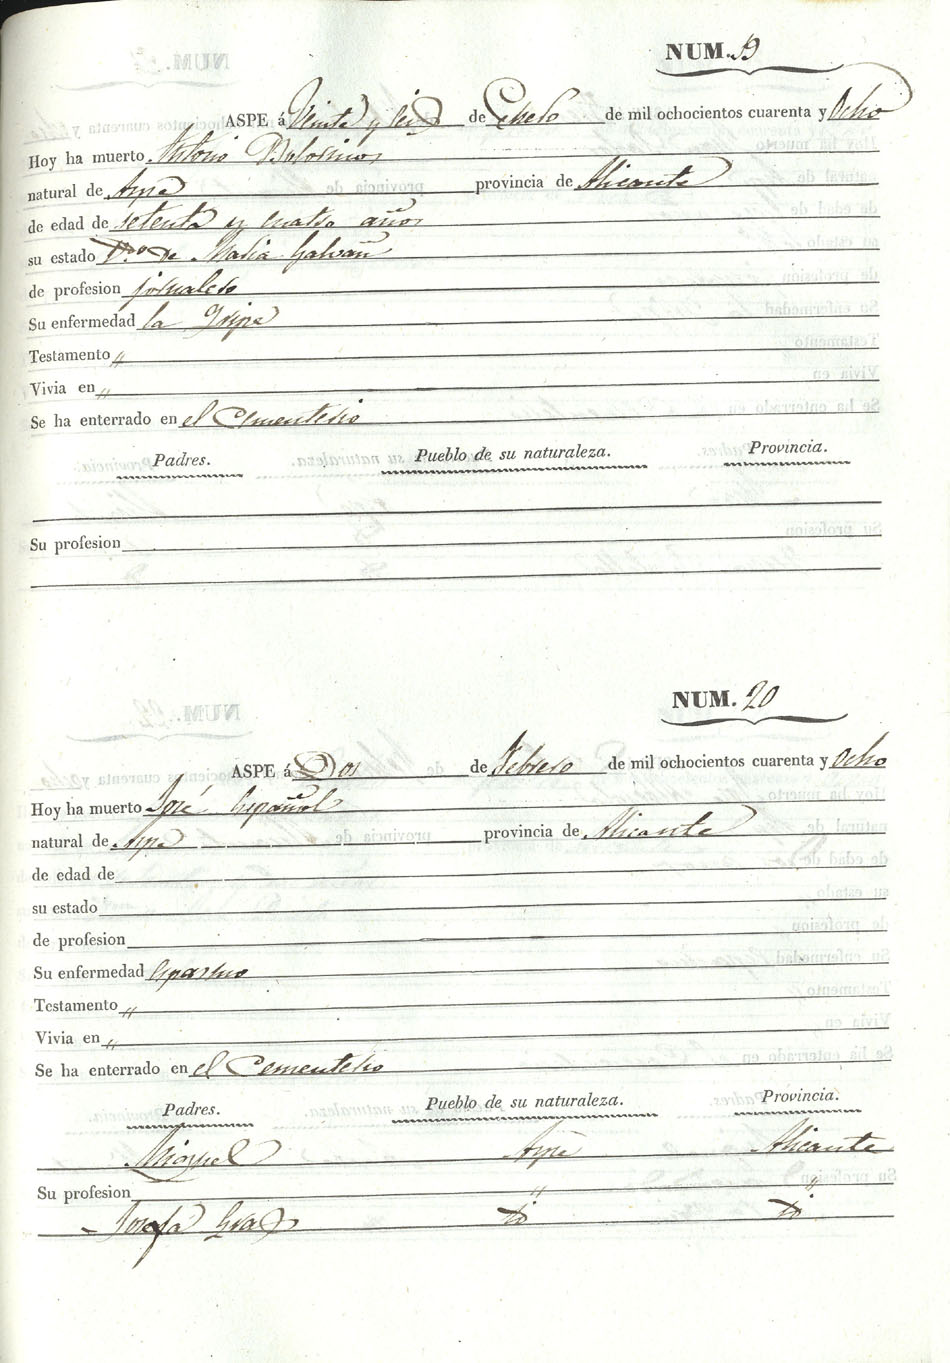 NUM. 19
ASPE á Veinte y seis de Enero de mil ochocientos cuarenta y Ocho
Hoy ha muerto Antonio
natural de Aspe provincia de Alicante
de edad de setenta y cuatro años
su estado V.do de Maria Galvañ
de profesion jornalero
Su enfermedad la Gripe
Testamento "
Vivia en "
Se ha enterrado en el Cementerio
Padres. Pueblo de su naturaleza. Provincia.
Su profesion
NUM. 20
ASPE á Dos de Febrero de mil ochocientos cuarenta y Ocho
Hoy ha muerto José Español
natural de Aspe provincia de Alicante
de edad de
su estado
de profesion
Su enfermedad espasmo
Testamento "
Vivia en "
Se ha enterrado en el Cementerio
Padres. Pueblo de su naturaleza. Provincia.
Miguel Aspe Alicante
Su profesion " "
Josefa